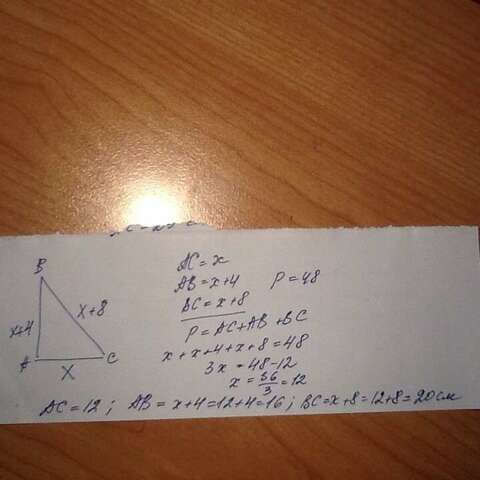 B
x+4
x+8
A
x
C
AC = x
AB = x+4 P = 48
BC = x+8
P = AC+AB+BC
x+x+4+x+8=48
3x = 48-12
x = 36/3 = 12
AC = 12 ; AB = x+4=12+4=16 ; BC=x+8=12+8=20см